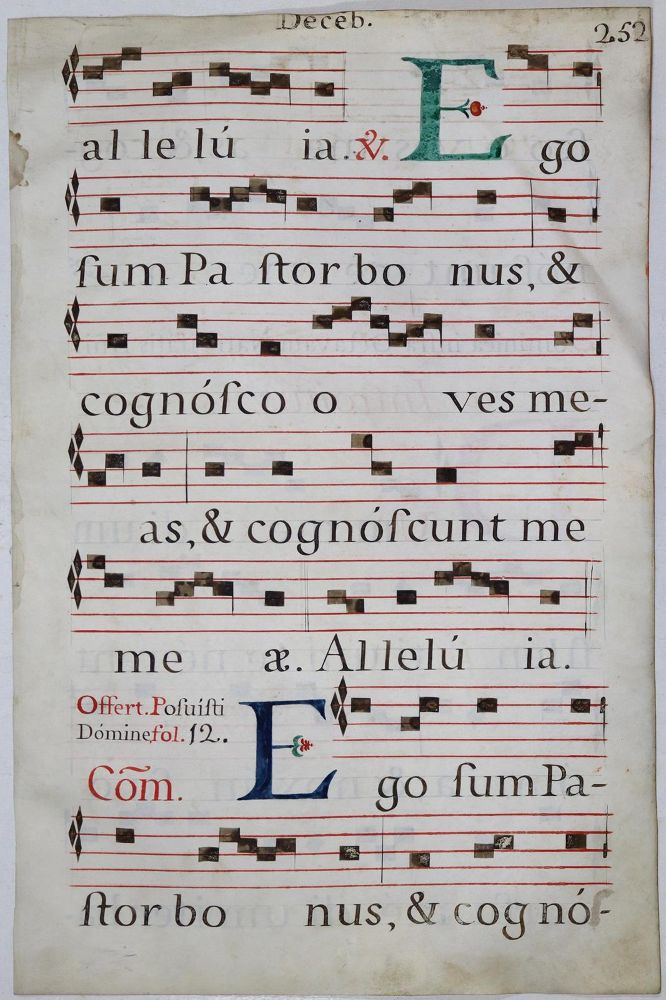 Decéb.
252
al le lú ia. ℣. E go
ſum Pa ſtor bo nus, &
cognóſco o ves me-
as, & cognóſcunt me
me æ. Al lelú ia.
Offert. Poſuíſti
Dómine fol. 12.
Cõm. E go ſum Pa-
ſtor bo nus, & cog nó-